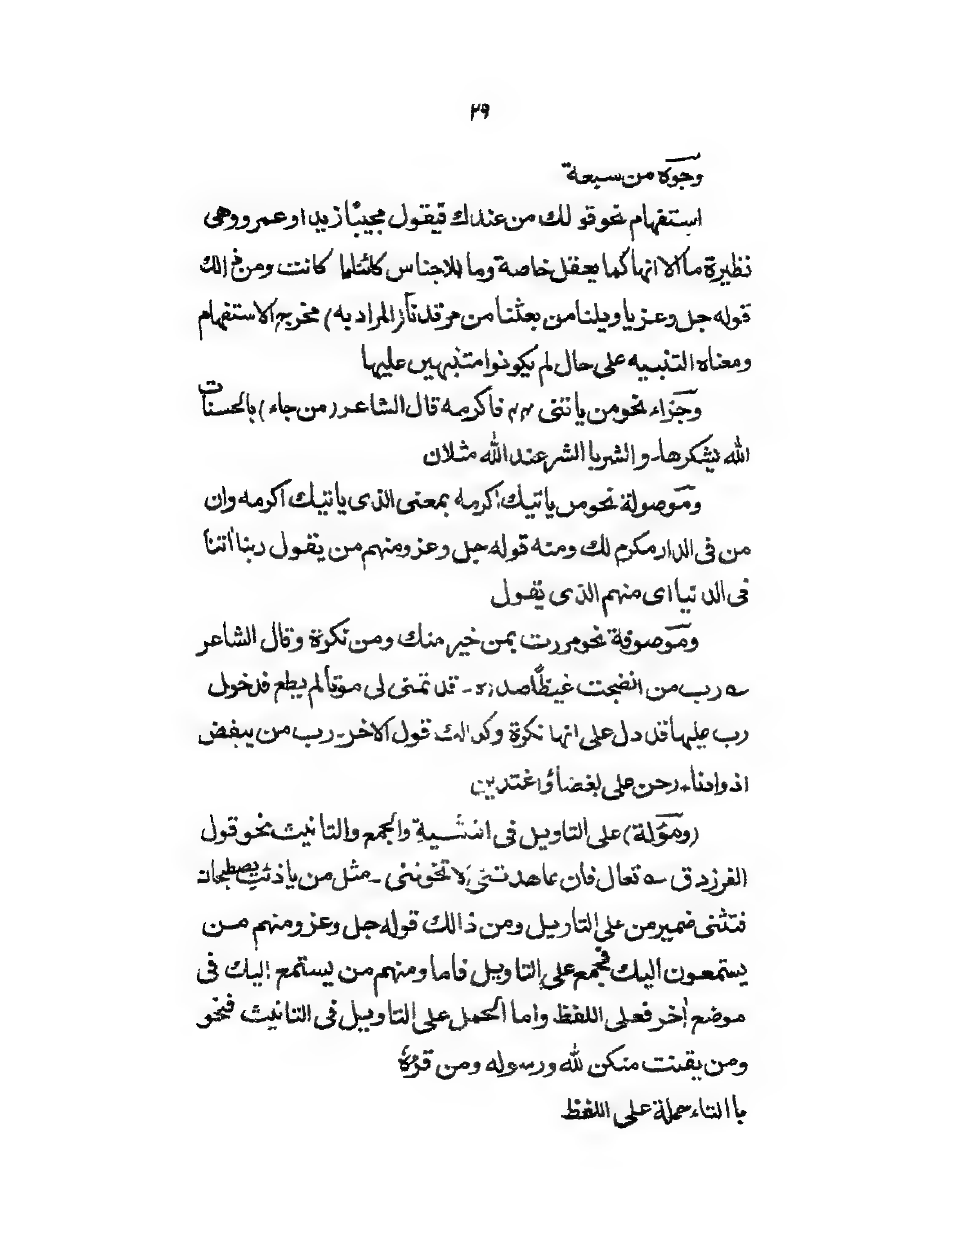 ٢٩
وجوه من سبعة
استفهام نحو قو لك من عندك فيقول مجيبًا زيد او عمر ووهى
نظيرة ما الا انها كما يعقل خاصة وما للاجناس كائنا ما كانت ومن ذالك
قوله جل وعز يا ويلنا من بعثنا من مرقدنا (المراد به) مخرج الاستفهام
ومعناه التنبيه على حال لم يكونوا متنبهين عليها
وجزاء نحو من يا تنى فاكرمه قال الشاعر (من جاء) بالحسنات
الله يشكرها۔ والشر با الشر عند الله مثلان
وموصولة نحو من ياتيك اكرمه بمعنى الذى ياتيك اكرمه وان
من فى الدار مكرم لك ومنه قوله جل وعز ومنهم من يقول ربنا اٰتنا
فى الد نيا اى منهم الذى يقول
وموصوفة نحو مررت بمن خير منك ومن نكرة وقال الشاعر
؎ رب من انضجت غيظًا صدره ۔ قد تمنى لى موتا لم يطع فدخول
رب عليها قد دل على انها نكرة وكذالك قول الاخر۔ رب من يبغض
اذوادنا۔ رحن على بغضائه واغتدين
(ومؤلة) على التاويل فى التثنية والجمع والتانيث نحو قول
الفرزدق ؎ تعال فان عاهدتنى لا تخوننى ۔ مثل من يا ذئب يصطحبان
فتثنى ضمير من على التاويل ومن ذالك قوله جل وعز ومنهم من
يستمعون اليك فجمع على التاويل فاما ومنهم من يستمع اليك فى
موضع اٰخر فعلى اللفظ واما الحمل على التاويل فى التانيث فنحو
ومن يقنت منكن لله ورسوله ومن قرءه
با التاء حملة على اللفظ